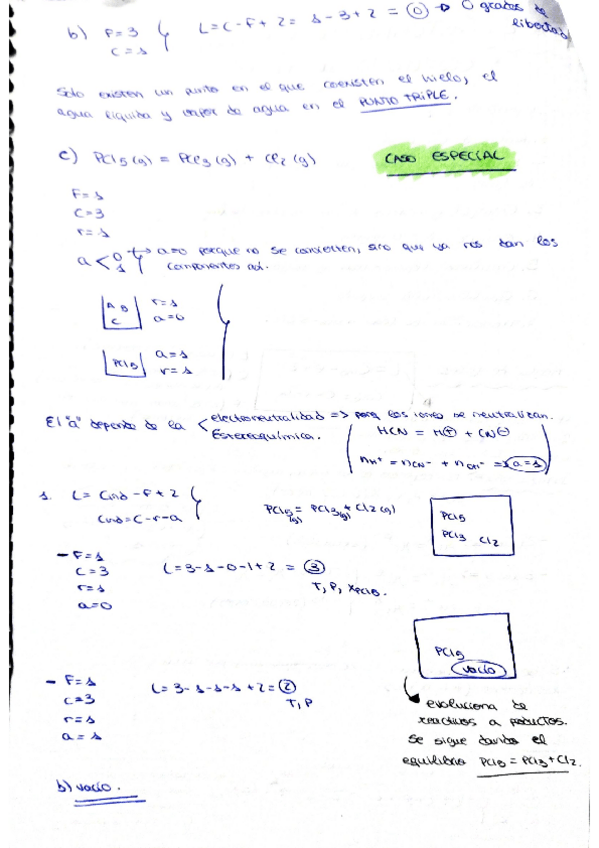 b) F=3
C=1
L=C-F+2= 1-3+2 = 0 → 0 grados de
libertad
Solo existen un punto en el que coexisten el hielo, el
agua líquida y vapor de agua en el PUNTO TRIPLE.
c) PCl5(g) = PCl3(g) + Cl2(g)
CASO ESPECIAL
F=1
C=3
r=1
a < 0 1 → a=0 porque no se convierten, sino que ya nos dan los
componentes así.
A B
C
r=1
a=0
PCl5
a=1
r=1
El "a" depende de la
electroneutralidad => para los iones se neutralizan.
Estereoquímica.
HCN = H+ + CN-
nH+ = nCN- + nOH- => a=1
1. L= Cind - F + 2
Cind=C-r-a
PCl5(g) = PCl3(g) + Cl2(g)
PCl5
PCl3 Cl2
- F=1
C=3
r=1
a=0
L=3-1-0-1+2 = 3
T, P, XPCl5.
PCl5
vacío
- F=1
C=3
r=1
a=1
L=3-1-1-1+2=2
T, P
evoluciona de
reactivos a productos.
Se sigue dando el
equilibrio PCl5 = PCl3 + Cl2.
b) vacío.